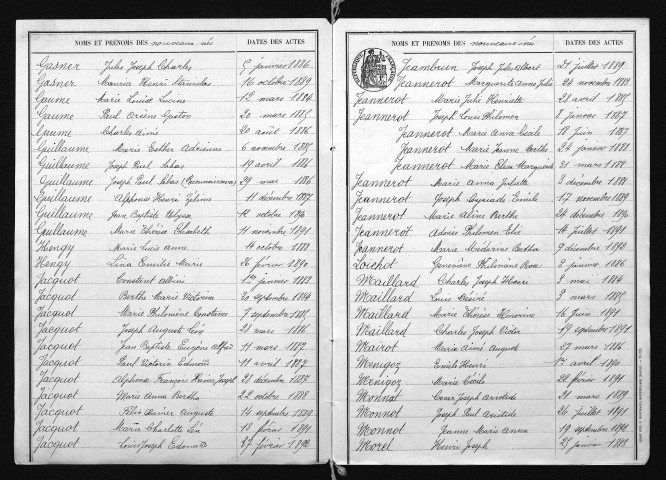 NOMS ET PRÉNOMS DES nouveaux-nés DATES DES ACTES
Gasner Jules Joseph Charles 5 janvier 1886
Gasner Maurice Henri Stanislas 16 octobre 1889
Gaume Marie Louise 12 mars 1884
Gaume Paul Arsène Gaston 20 mars 1885
Gaume Charles Aimé 20 août 1886
Guillaume Marie Esther Adrienne 6 novembre 1885
Guillaume Joseph Paul 19 avril 1886
Guillaume Joseph Paul (Reconnaissance) 29 mai 1886
Guillaume Alphonse Henri 11 décembre 1887
Guillaume Jean Baptiste Ulysse 12 octobre 1890
Guillaume Marie Thérèse Elisabeth 11 novembre 1891
Hengy Marie Lucie Anne 14 octobre 1888
Hengy Lina Emilie Marie 26 février 1890
Jacquot Constant Albin 1er janvier 1883
Jacquot Berthe Marie Victorine 20 septembre 1884
Jacquot Marie Philomène Constance 7 septembre 1885
Jacquot Joseph Auguste 21 mars 1886
Jacquot Jean Baptiste Eugène Alfred 11 mars 1887
Jacquot Paul Victorin Edmond 11 avril 1887
Jacquot Alphonse François Joseph 21 décembre 1887
Jacquot Marie Anna Bertha 22 octobre 1888
Jacquot Félix Xavier Auguste 14 septembre 1889
Jacquot Marie Charlotte Léa 18 février 1891
Jacquot Louis Joseph Edouard 27 février 1892
NOMS ET PRÉNOMS DES nouveaux-nés DATES DES ACTES
Jeambrun Joseph Jules Albert 21 juillet 1889
Jeannerot Marguerite Anne Julie 24 novembre 1883
Jeannerot Marie Julie Henriette 28 avril 1885
Jeannerot Joseph Louis Philomen 8 janvier 1887
Jeannerot Marie Anna Cécile 18 juin 1887
Jeannerot Marie Jeanne Marthe 24 janvier 1888
Jeannerot Marie Elisa Marguerite 31 mars 1888
Jeannerot Marie Anna Juliette 8 décembre 1888
Jeannerot Joseph Emile 17 novembre 1889
Jeannerot Marie Aline Berthe 24 décembre 1890
Jeannerot Adonis Philomen Elie 14 juillet 1891
Jeannerot Marie Bertha 9 décembre 1892
Loichot Geneviève Philomène Rose 8 janvier 1886
Maillard Charles Joseph Henri 8 mai 1884
Maillard Louis Désiré 3 mars 1885
Maillard Marie Thérèse Honorine 16 juin 1891
Maillard Charles Joseph Victor 19 septembre 1891
Mairot Marie Aimé Auguste 27 mars 1886
Menigoz Emile Henri 1er avril 1890
Menigoz Marie Cécile 22 février 1891
Monnot César Joseph Aristide 21 mars 1889
Monnot Joseph Paul Aristide 26 juillet 1891
Monnot Jeanne Marie Anna 19 septembre 1892
Morel Henri Joseph 25 janvier 1888